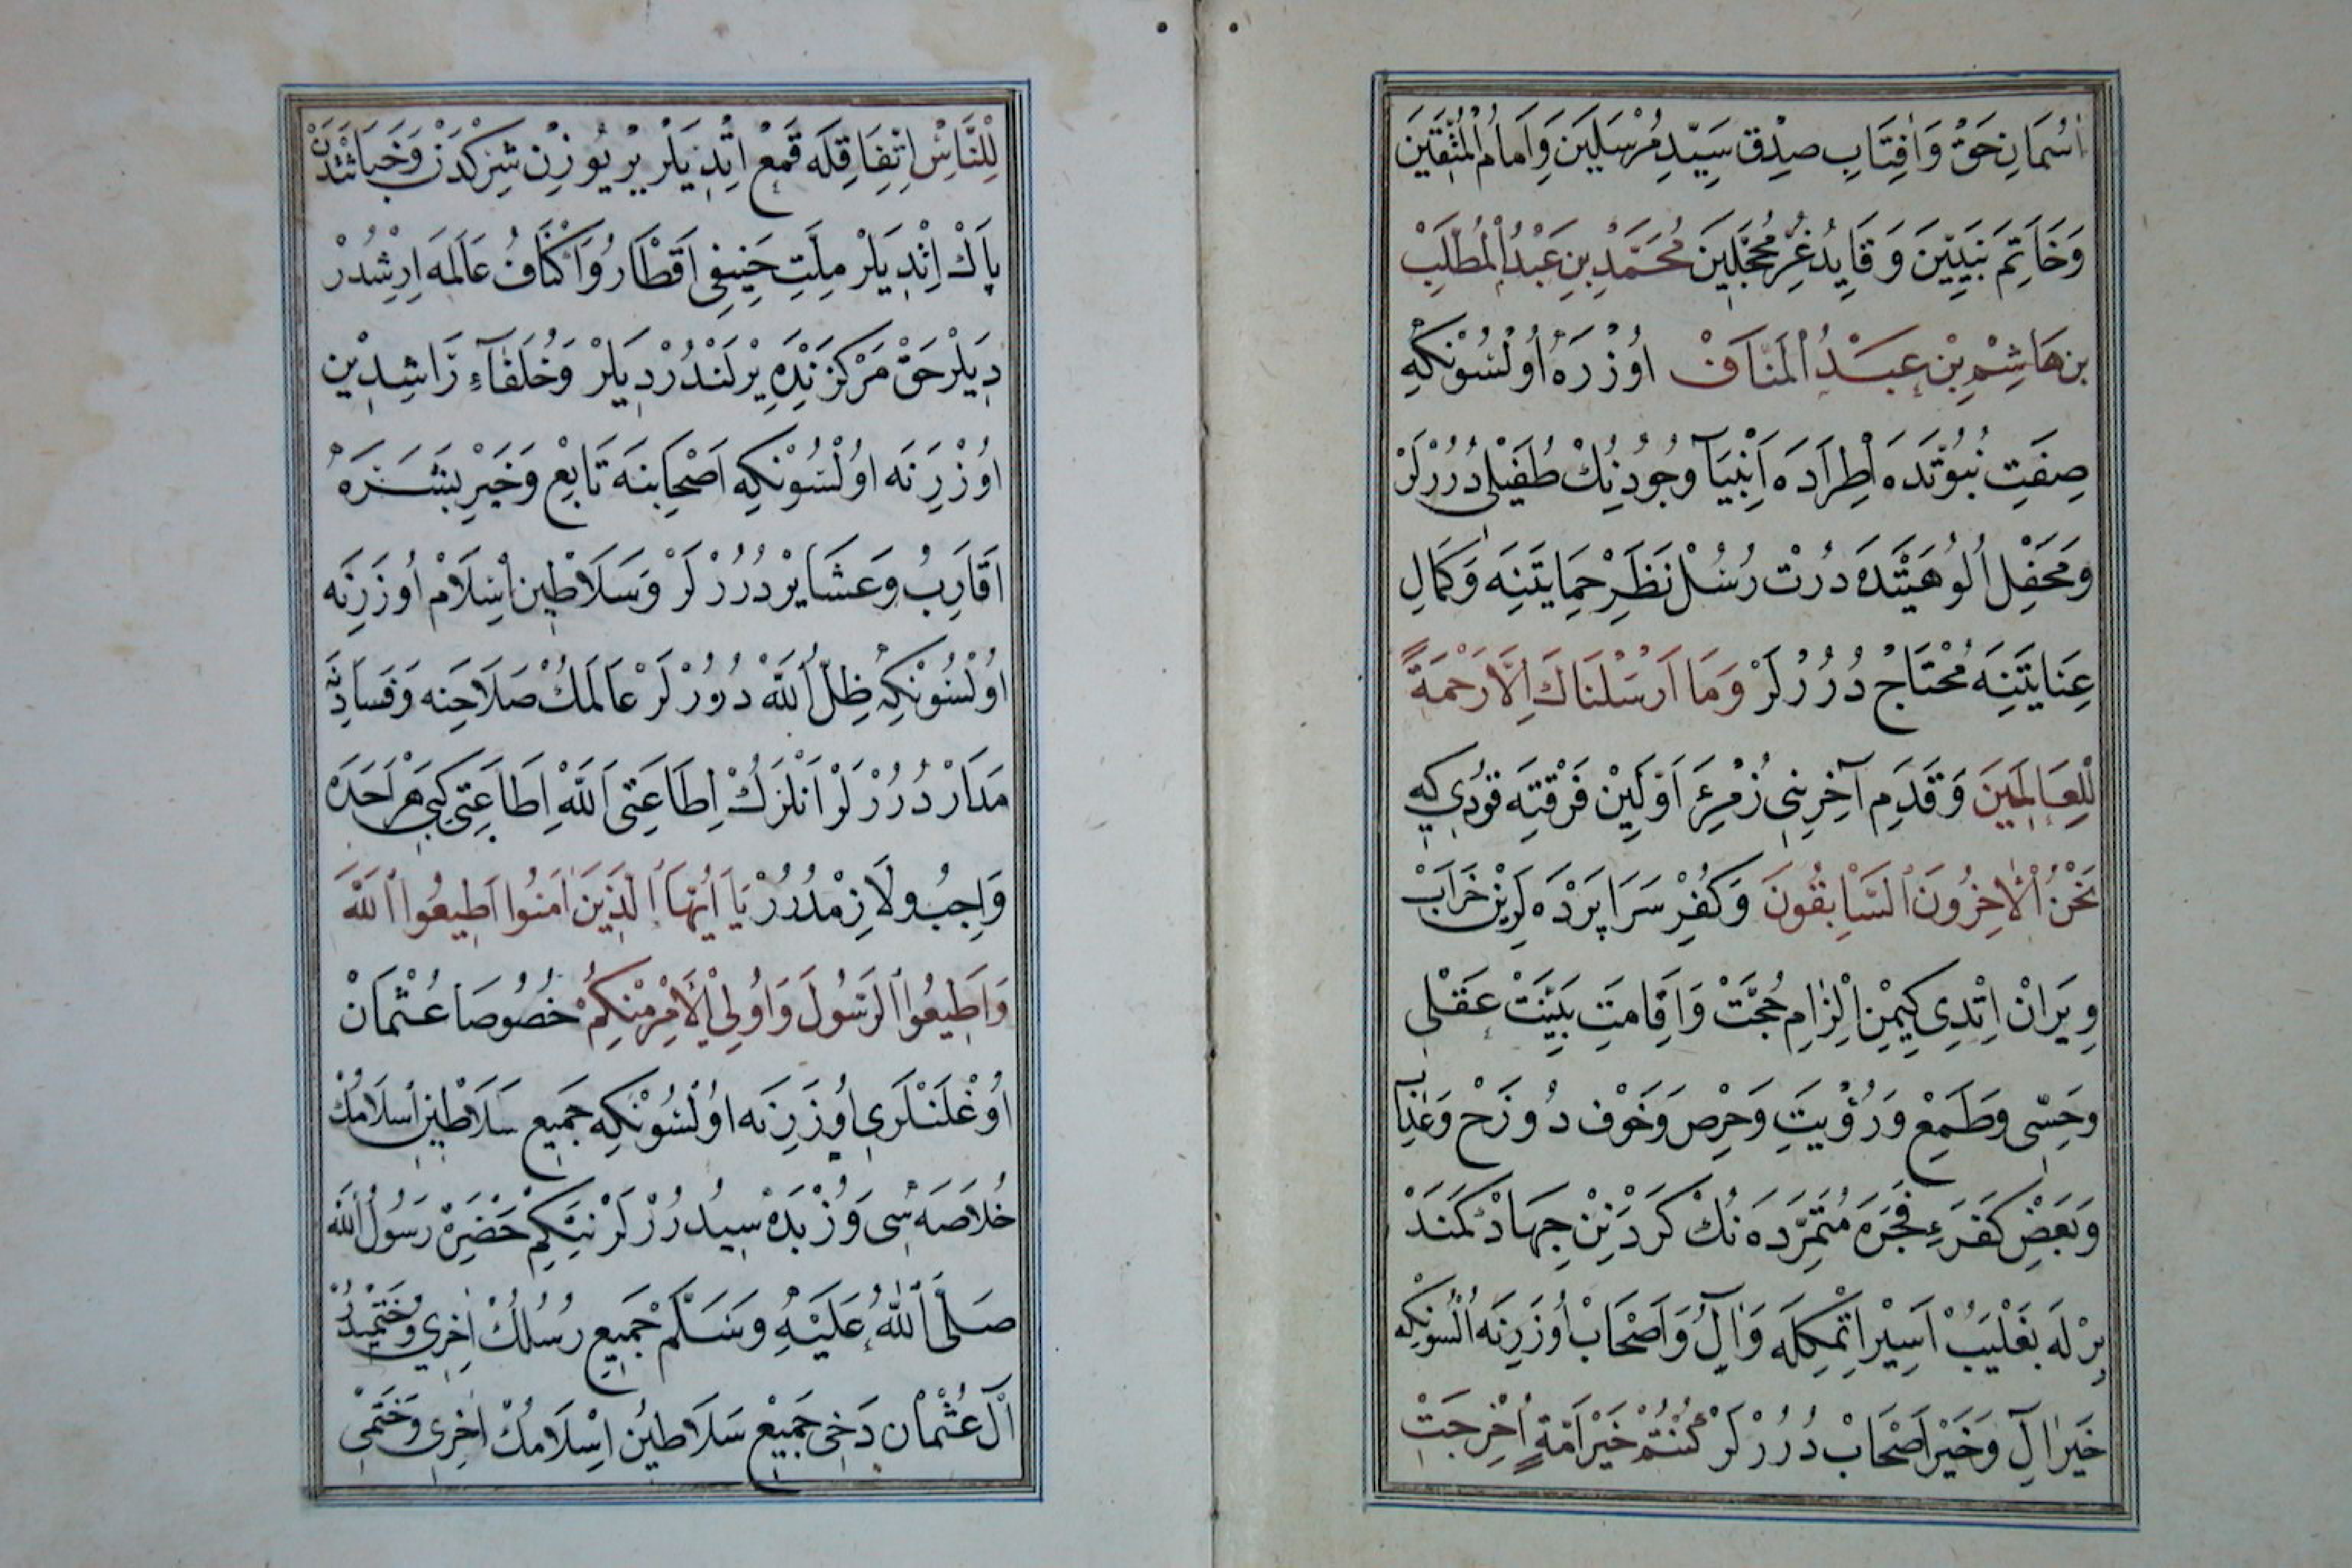 اُسْمَانِ حَقْ وَاٰفِتَابِ صِدْق سَيِّدِ مُرْسَلِينَ وَاِمَامُ الْمُتَّقِينَ
وَخَاتِمِ نَبِيِّينَ وَقَايِدُ غُرِّ مُحَجَّلِينَ مُحَمَّدِ بنِ عَبْدُ الْمُطَّلِبْ
بن هَاشِمْ بْن عَبْدُ الْمَنَافْ اُوزْرَهْ اُولْسُونْكِه
صِفَتِ نُبُوَّتَدَه اِطِرَادَه اَنْبِيَآ وُجُودِنِكْ طُفَيْلِى دُرُرْلَرْ
وَمَحْفِلِ اُلُوهِيَّتْدَه دُرْت رُسُلْ نَظَرِ حِمَايَتِنِه وَكَمَالِ
عِنَايَتِنِه مُحْتَاجْ دُرُرْلَرْ وَمَا اَرْسَلْنَاكَ اِلَّا رَحْمَةً
لِلْعَالَمِينَ وَقَدَمِ آخِرِينِى زُمْرَءِ اَوَّلِينْ فَرْقِتِه قُودِى كِه
نَحْنُ الْاٰخِرُونَ السَّابِقُونَ وَكُفْرِ سَرَاپَرْدَه لَرِينْ خَرَابْ
وِيَرَانْ اِتْدِى كِيمِنْ اِلْزَامِ حُجَّتْ وَاِقَامَتِ بَيِّنَتْ عَقْلِى
وَحِسِّى وَطَمَعِ وَرُؤْيَتِ وَحِرْص وَخَوْفِ دُوزَخْ وَعَذَاب
وَبَعْضِ كَفَرَءِ فَجَرَه مُتَمَرِّدَه نُكْ كَرْدَنِنْ جِهَادْ كَمَنْدْ
بِرْلَه بَغْلَيُبْ اَسِيرْ اِتْمِكِلَه وَاٰلْ وَاَصْحَابْ اُوزَرِنَه اُلْسُونكِه
خَيْرِ اٰلْ وَخَيْرِ اَصْحَابْ دُرُرْلَرْ كُنْتُمْ خَيْرَ اُمَّةٍ اُخْرِجَتْ
لِلنَّاسْ اِتِّفَاقِلَه قَمْعْ اِتْدِيلَرْ يِرْ يُوزِنْ شِرْكِدَنْ وَخَبَاثَتْدَنْ
پَاكْ اِتْدِيلَرْ مِلَّتِ حَنِيفِى اَقْطَارُ وَاَكْنَافُ عَالَمَه اِرِشْدُرْ
دِيلَرْ حَقْ مَرْكَزِنْدَه يِرْلَنْدُرْدِيلَرْ وَخُلَفَآءِ رَاشِدِينْ
اُوزْرِنَه اُولْسُونْكِه اَصْحَابِنَه تَابِعْ وَخَيْرِ بَشَرَهْ
اَقَارِبُ وَعَشَايِرْ دُرُرْلَرْ وَسَلَاطِينِ اِسْلَامْ اُوزَرِنَه
اُولْسُونْكِه ظِلُّ اللهْ دُرُورْلَرْ عَالَمِكْ صَلَاحِنه وَفَسَادِنَه
مَدَارْ دُرُرْلَرْ اَنْلَرُكْ اِطَاعَتِى اَللهْ اِطَاعَتِى كِبِى هَرْ اَحَدَه
وَاجِبُ وَلَازِمْدُرُرْ يَا اَيُّهَا الَّذِينَ اٰمَنُوا اَطِيعُوا اللهَ
وَاَطِيعُوا الرَّسُولَ وَاُولِى الْاَمْرِ مِنْكُمْ خُصُوصَا عُثْمَانْ
اُوغْلَنْلَرِى اُوزَرِنَه اُولْسُونْكِه جَمِيعِ سَلَاطِينِ اِسْلَامُكْ
خُلَاصَه سِى وَزُبْدَه سِيدُرْلَرْ نِتَكِمْ حَضَرَتْ رَسُولُ الله
صَلَّى اللهُ عَلَيْهِ وَسَلَّمْ جَمِيعِ رُسُلُكْ اٰخِرِى وَخَتْمِيدُرْ
اٰلِ عُثْمَان دَخِى جَمِيعِ سَلَاطِينْ اِسْلَامُكْ اٰخِرِى وَخَتْمِى